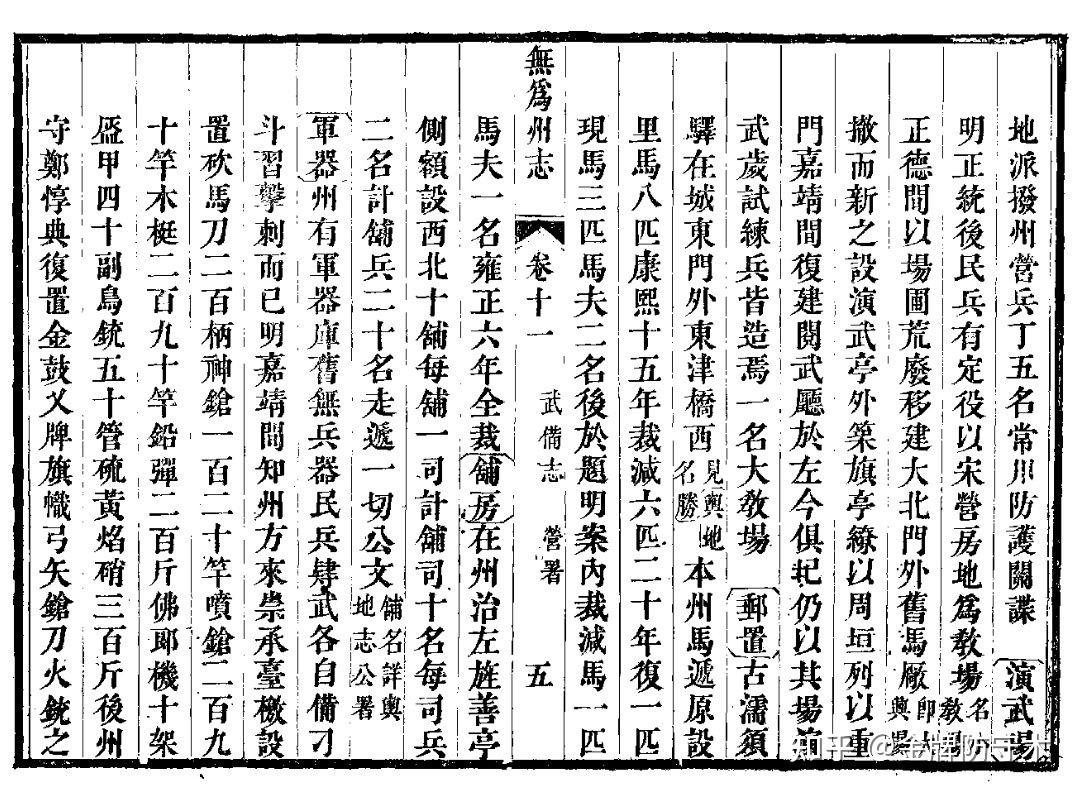 地派撥州營兵丁五名常川防護關諜　演武場
明正統後民兵有定役以宋營房地為教場名教
正德間以場圃荒廢移建大北門外舊馬廠即興
撤而新之設演武亭外築旗亭繚以周垣列以重
門嘉靖間復建閱武廳於左今俱圮仍以其場演
武歲試練兵皆造焉一名大教場　郵置古濡須
驛在城東門外東津橋西見輿地名勝本州馬遞原設
里馬八匹康熙十五年裁減六匹二十年復一匹
現馬三匹馬夫二名後於題明案內裁減馬一匹
無為州志　卷十一　武備志　營署　五
馬夫一名雍正六年全裁舖房在州治左旌善亭
側額設西北十舖每舖一司計舖司十名每司兵
二名計舖兵二十名走遞一切公文舖名詳輿地志公署
軍器州有軍器庫舊無兵器民兵肄武各自備刁
斗習擊刺而已明嘉靖間知州方來崇承臺檄設
置砍馬刀二百柄神鎗一百二十竿噴鎗二百九
十竿木梃二百九十竿鉛彈二百斤佛郎機十架
盔甲四十副鳥銃五十管硫黃焰硝三百斤後州
守鄭惇典復置金鼓叉牌旗幟弓矢鎗刀火銃之
知乎 @金牌防守未